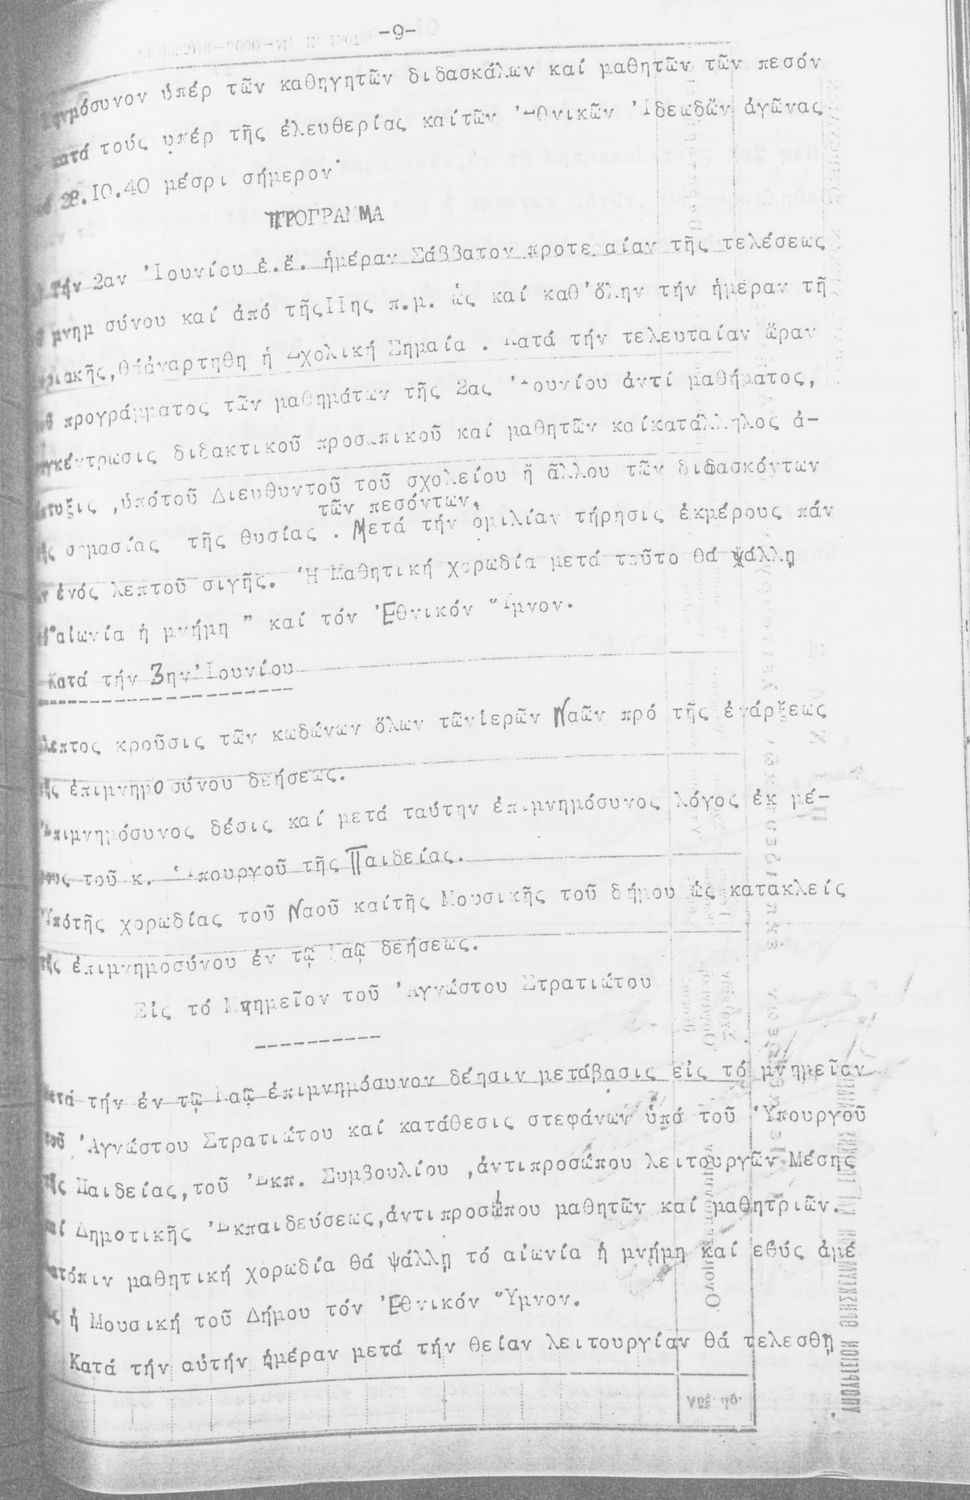 -9-
μόσυνον ὑπέρ τῶν καθηγητῶν διδασκάλων καί μαθητῶν τῶν πεσόν
κατά τούς ὑπέρ τῆς ἐλευθερίας καίτῶν Ἐθνικῶν Ἰδεωδῶν ἀγῶνας
28.10.40 μέσρι σήμερον
ΠΡΟΓΡΑΜΜΑ
Τήν 2αν Ἰουνίου ἐ.ἔ. ἡμέραν Σάββατον προτεραίαν τῆς τελέσεως
μνημ σύνου καί ἀπό τῆςΙΙης π.μ. ὡς καί καθ'ὅλην τήν ἡμέραν τῆ
ριακῆς,θάἀναρτηθῆ ἡ Σχολική Σημαία . Κατά τήν τελευταίαν ὥραν
προγράμματος τῶν μαθημάτων τῆς 2ας Ἰουνίου ἀντί μαθήματος,
γκέντρωσις διδακτικοῦ προσωπικοῦ καί μαθητῶν καίκατάλληλος ἀ-
πτυξις ,ὑπότοῦ Διευθυντοῦ τοῦ σχολείου ἤ ἄλλου τῶν διδασκόντων
τῶν πεσόντων.
σημασίας τῆς θυσίας . Μετά τήν ὁμιλίαν τήρησις ἐκμέρους πάν
ἑνός λεπτοῦ σιγῆς. Ἡ Μαθητική χορωδία μετά τοῦτο θά ψάλλῃ
"αἰωνία ἡ μνήμη " καί τόν Ἐθνικόν Ὕμνον.
Κατά τήν 3ην Ἰουνίου
λεπτος κροῦσις τῶν κωδώνων ὅλων τῶνἱερῶν Ναῶν πρό τῆς ἐνάρξεως
τῆς ἐπιμνημοσύνου δεήσεως.
Ἐπιμνημόσυνος δέσις καί μετά ταύτην ἐπιμνημόσυνος λόγος ἐκ μέ-
ρους τοῦ κ. Ὑπουργοῦ τῆς Παιδείας.
Ὑπότῆς χορωδίας τοῦ Ναοῦ καίτῆς Μουσικῆς τοῦ δήμου ὡς κατακλείς
τῆς ἐπιμνημοσύνου ἐν τῷ Ναῷ δεήσεως.
Εἰς τό Μνημεῖον τοῦ Ἀγνώστου Στρατιώτου
Μετά τήν ἐν τῷ Ναῷ ἐπιμνημόσυνον δέησιν μετάβασις εἰς τό μνημεῖον
τοῦ Ἀγνώστου Στρατιώτου καί κατάθεσις στεφάνων ὑπό τοῦ Ὑπουργοῦ
τῆς Παιδείας,τοῦ Ἐκπ. Συμβουλίου ,ἀντιπροσώπου λειτουργῶν Μέσης
καί Δημοτικῆς Ἐκπαιδεύσεως,ἀντιπροσώπου μαθητῶν καί μαθητριῶν.
ατόπιν μαθητική χορωδία θά ψάλλῃ τό αἰωνία ἡ μνήμη καί εθύς ἀμέ
ἡ Μουσική τοῦ Δήμου τόν Ἐθνικόν Ὕμνον.
Κατά τήν αὐτήν ἡμέραν μετά τήν θείαν λειτουργίαν θά τελεσθῃ